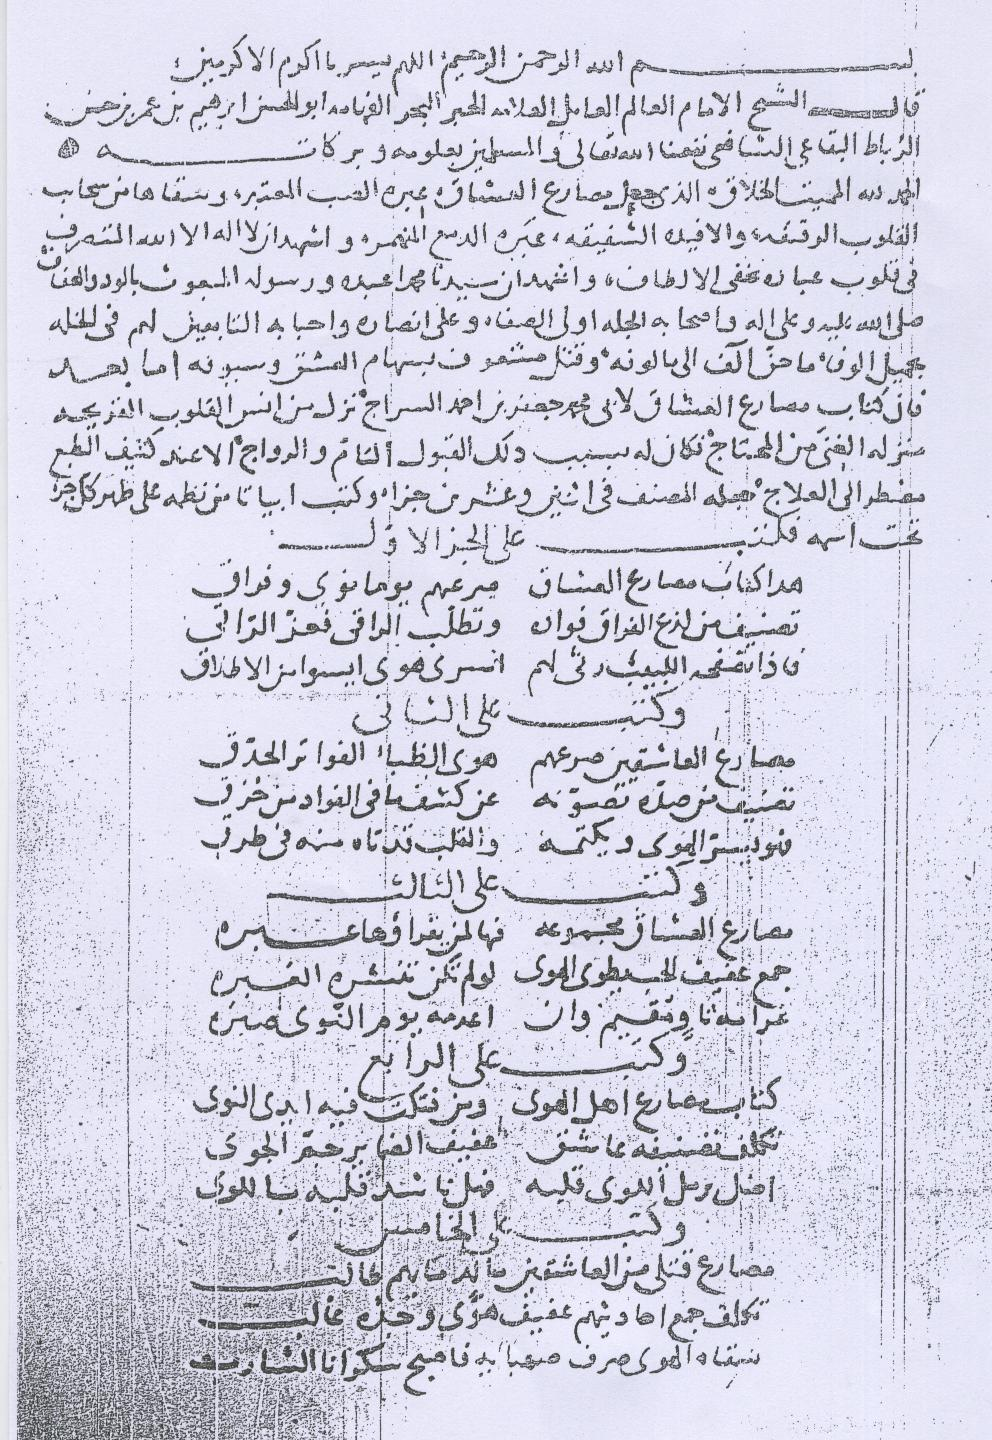 بسم الله الرحمن الرحيم اللهم يسر يا اكرم الاكرمين
قال الشيخ الامام العالم العامل العلامه الحبر البحر الفهامه ابو الحسن ابرهيم بن عمر بن حسن
الرباط البقاعي الشافعي نفعنا الله تعالى والمسلمين بعلومه وبركاته
الحمد لله المميت الخلاق الذي جعل مصارع العشاق عبره الصب المعتبر وسقاها من سحاب
القلوب الرقيقه والافيده الشفيقه عبره الدمع المنهمر واشهد ان لا اله الا الله المتصرف
في قلوب عباده بخفي الالطاف واشهد ان سيدنا محمدا عبده ورسوله المبعوث بالود والعفاف
صلى الله عليه وعلى اله واصحابه الجله اولى الصفاء وعلى انصاره واحبابه التابعين لهم في الخله
بجميل الوفاء ما حن آلف الى مالوفه وقتل مشغوف بسهام العشق وسيوفه اما بعد
فان كتاب مصارع العشاق لابي محمد جعفر بن احمد السراج نزل من انس القلوب القريحه
منزله الغنى من المحتاج فكان له بسبب ذلك القبول التام والرواج الا عند كثيف الطبع
مضطر الى العلاج جعله المصنف في اثنين وعشرين جزا وكتب ابياتا من نظمه على ظهر كل جزء
تحت اسمه فكتب على الجز الاول
هذا كتاب مصارع العشاق صرعتهم يوما نوى وفراق
تصنيف من لذع الفراق فواده وتطلب الراقي فعز الراقي
فاذا تصفحه اللبيب رثى لهم اسرى هوى ايسوا من الاطلاق
وكتب على الثاني
مصارع العاشقين صرعهم هوى الظباء الفواتر الحدق
تصنيف من صده تصونه عن كشف ما في الفواد من حرق
فهو يسر الهوى ويكتمه والقلب قد تاه منه في طرق
وكتب على الثالث
مصارع العشاق مجموعه فها لمن يقراوها عبره
جمع عفيف الحب يطوي الهوى لو لم تكن تنشره العبره
غرامه ثاو مقيم وان اعدمه يوم النوى صبره
وكتب على الرابع
كتاب مصارع اهل الهوى ومن فتكت فيه ايدي النوى
تكلف تصنيفه عاشق عفيف الضمير جمر الجوى
اضل برمل اللوى قلبه فهل ناشد قلبه باللوى
وكتب على الخامس
مصارع قتلى من العاشقين ما لدمايهم طالب
تكلف جمع احاديثهم عفيف هوى وجده غالب
سقاه الهوى صرف صهبايه فاصبح سكرانا الشارب